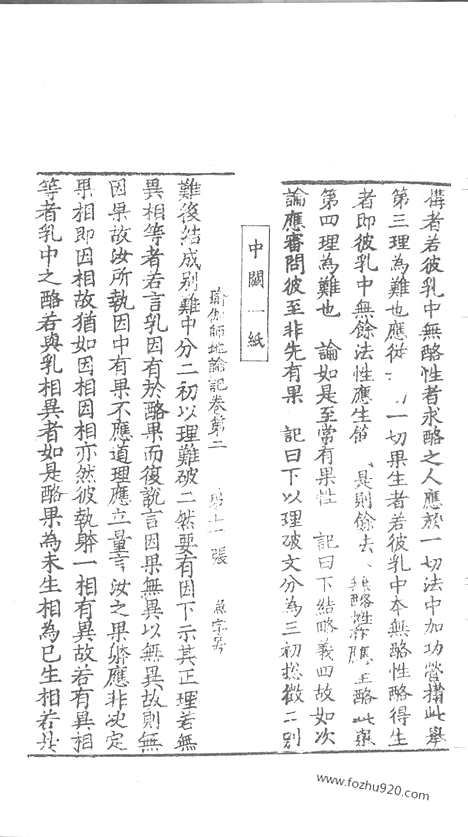 構者若彼乳中無酪性者求酪之人應於一切法中加功營構此舉
第三理為難也應從一切果生者若彼乳中本無酪性酪得生
者即彼乳中無餘法性應生餘是則餘去無酪性能應生酪此舉
第四理為難也 論如是至常有果性 記曰下結略義四故如次
論應審問彼至非先有果 記曰下以理破文分為三初揔徵二別
中闕一紙
瑜伽師地論記卷第二 第十一張
難後結成別難中分二初以理難破二然要有因下示其正理若無
異相等者若言乳因有於酪果而復說言因果無異以無異故則無
因果故汝所執因中有果不應道理應立量言汝之果躰應非決定
果相即因相故猶如因相因相亦然彼執躰一相有異故若有異相
等者乳中之酪若與乳相異者如是酪果為未生相為已生相若其
www.fozhu920.com